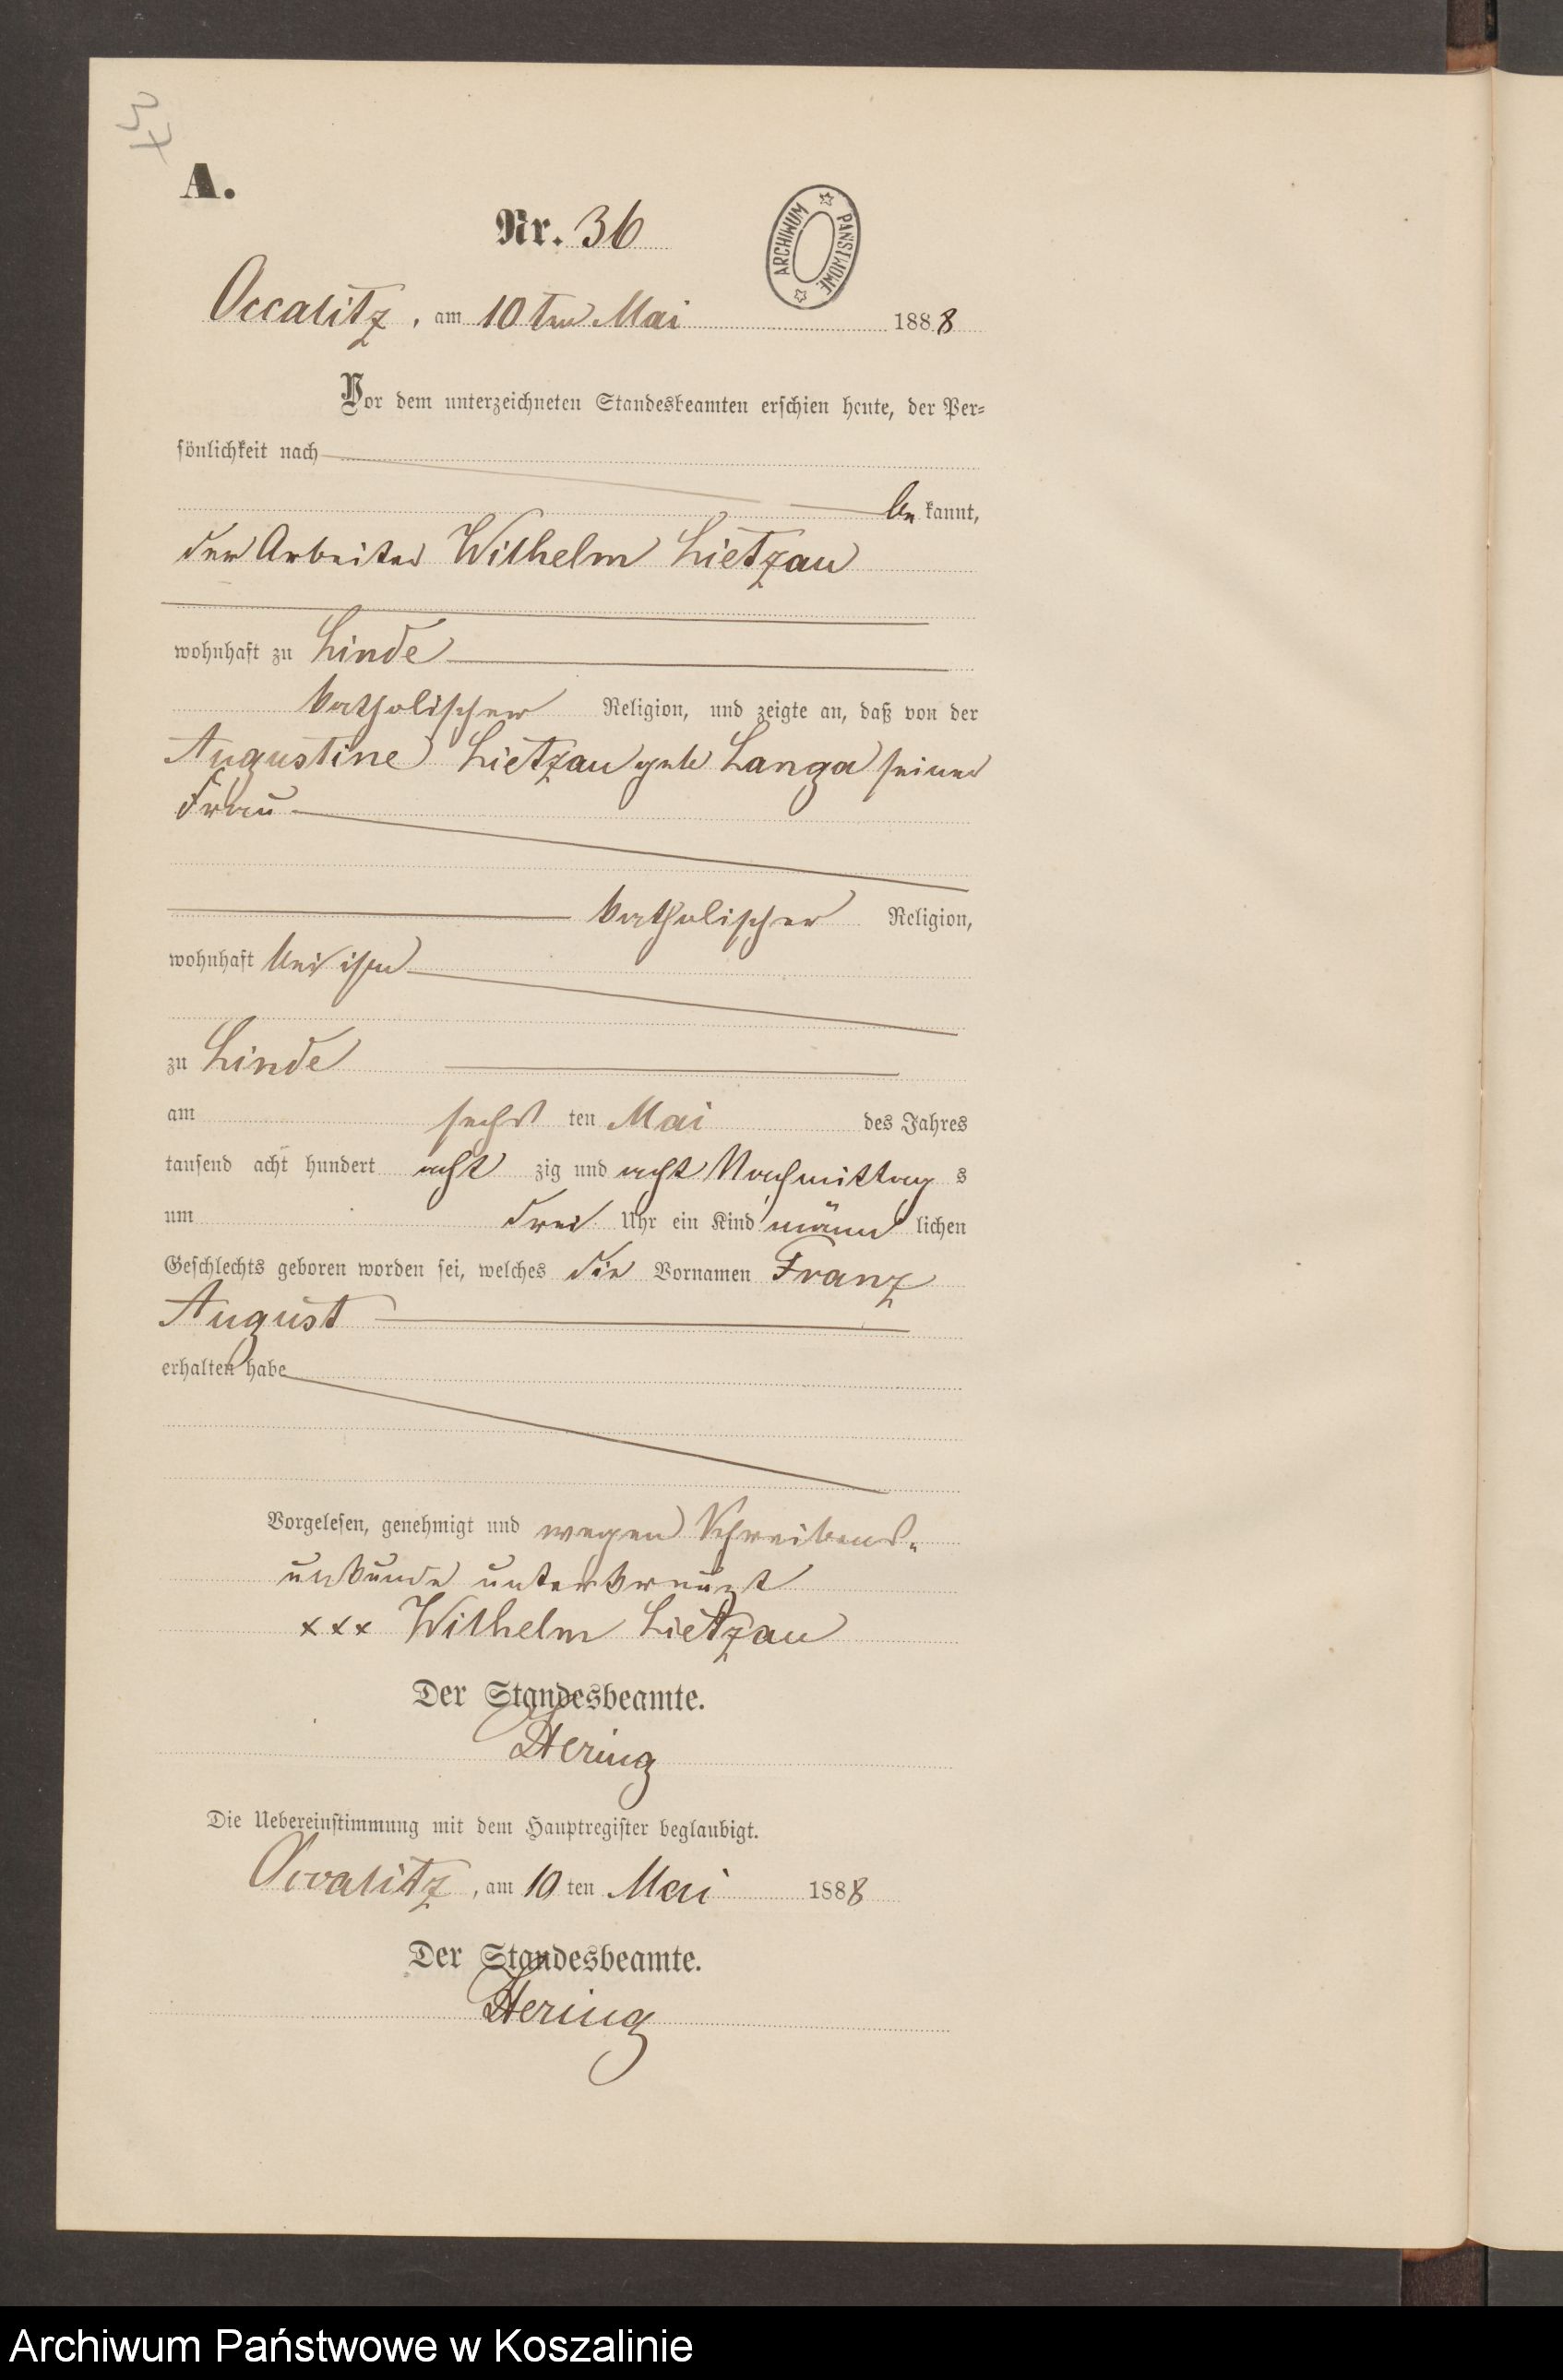 34
A.
Nr. 36
ARCHIWUM PAŃSTWOWE
Occalitz, am 10ten Mai 1888
Vor dem unterzeichneten Standesbeamten erschien heute, der Per=
sönlichkeit nach
be kannt,
der Arbeiter Wilhelm Lietzau
wohnhaft zu Linde
katholischer Religion, und zeigte an, daß von der
Augustine Lietzau geb Langa seiner
Frau
katholischer Religion,
wohnhaft bei ihm
zu Linde
am sechs ten Mai des Jahres
tausend acht hundert acht zig und acht Nachmittag s
um drei Uhr ein Kind männ lichen
Geschlechts geboren worden sei, welches die Vornamen Franz
August
erhalten habe
Vorgelesen, genehmigt und wegen Schreibens-
unkunde unterkreuzt
xxx Wilhelm Lietzau
Der Standesbeamte.
Hering
Die Uebereinstimmung mit dem Hauptregister beglaubigt.
Occalitz, am 10 ten Mai 1888
Der Standesbeamte.
Hering
Archiwum Państwowe w Koszalinie